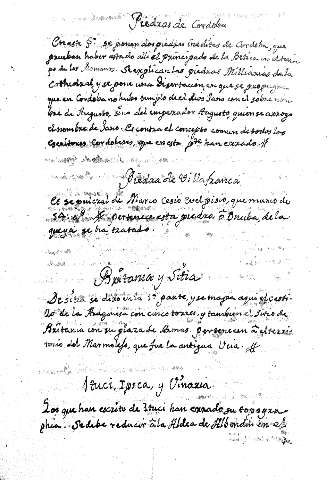 Piedras de Cordoba
En este §º se ponen dos piedras ineditas de Cordoba, que
prueban haber estado alli el principado de la Betica en tiem-
pos de los Romanos. Se explican las piedras Milliarias de la
Cathedral, y se pone una disertacion en que se propugna
que en Cordoba no hubo templo de el dios Jano con el sobre nom-
bre de Augusto, sino del emperador Augusto quien se arrogó
el nombre de Jano. Es contra el concepto comun de todos los
Escritores Cordobeses, que en esta pte han errado.
Piedra de Villafranca
Es sepulcral de Marco Cesio
54. aº. pertenece esta piedra à Onuba, de la
que ya se ha tratado.
Britania y Sitia
De Sitia se dixo en la 1ª parte, y se trahe aqui el Casti-
llo de la Aragonesa con cinco torres, y tambien el Sitio de
Britania con su plaza de Armas. pertenecen à el terri-
torio del Marmolejo, que fue la antigua Ucia.
Ituci, Ipsca, y Vinaria
Los que han escrito de Ituci han errado su topogra-
phia. Se debe reducir à la Aldea de Albendin en el